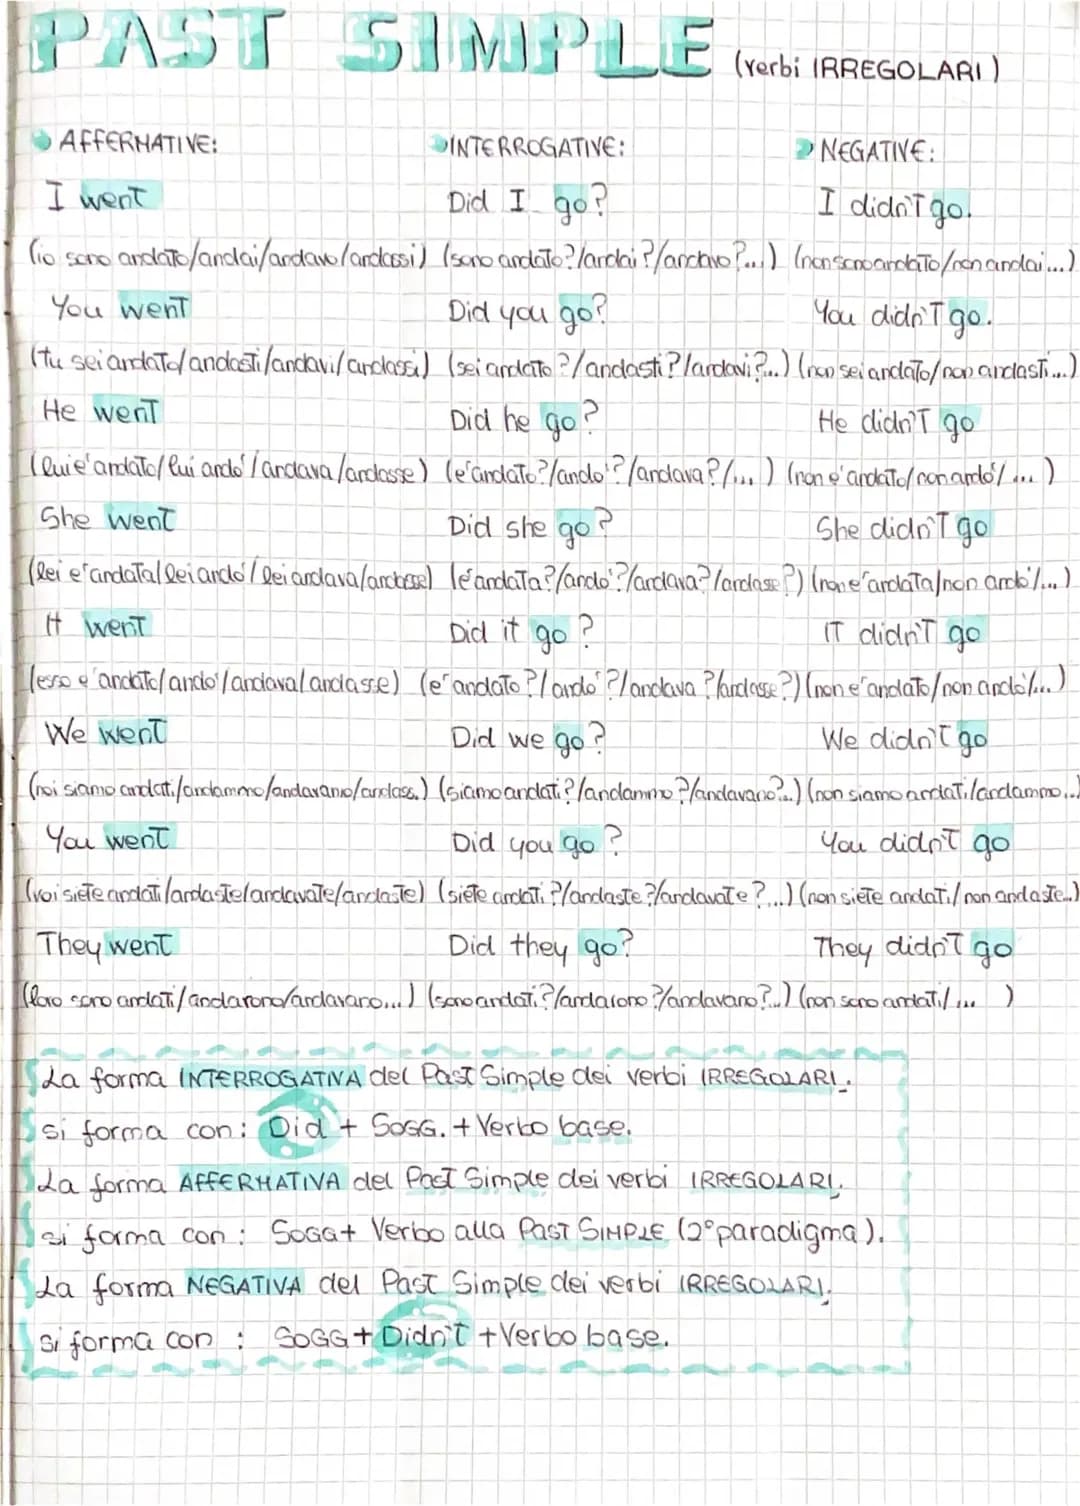 PAST SIMPLE (verbi IRREGOLARI)
AFFERMATIVE: INTERROGATIVE: NEGATIVE:
I went Did I go? I didn't go.
(io sono andato/andai/andavo/andassi) (sono andato?/andai?/andavo?...) (non sono andato/non andai...)
You went Did you go? You didn't go.
(tu sei andato/andasti/andavi/andassi) (sei andato?/andasti?/andavi?...) (non sei andato/non andasti...)
He went Did he go? He didn't go
(lui e' andato/lui ando'/andava/andasse) (e' andato?/ando'?/andava?/...) (non e' andato/non ando'/...)
She went Did she go? She didn't go
(lei e' andata/lei ando'/lei andava/andasse) (e' andata?/ando'?/andava?/andasse?) (non e' andata/non ando'/...)
It went Did it go? IT didn't go
(esso e' andato/ando'/andava/andasse) (e' andato?/ando'?/andava?/andasse?) (non e' andato/non ando'/...)
We went Did we go? We didn't go
(noi siamo andati/andammo/andavamo/andass.) (siamo andati?/andammo?/andavamo?...) (non siamo andati/andammo...)
You went Did you go? You didn't go
(voi siete andati/andaste/andavate/andaste) (siete andati?/andaste?/andavate?...) (non siete andati/non andaste...)
They went Did they go? They didn't go
(loro sono andati/andarono/andavano...) (sono andati?/andarono?/andavano?...) (non sono andati/... )
La forma INTERROGATIVA del Past Simple dei verbi IRREGOLARI.
si forma con: Did + SOGG. + Verbo base.
La forma AFFERMATIVA del Past Simple dei verbi IRREGOLARI.
si forma con: SOGG+ Verbo alla PAST SIMPLE (2° paradigma).
La forma NEGATIVA del Past Simple dei verbi IRREGOLARI.
si forma con : SOGG + Didn't + Verbo base.